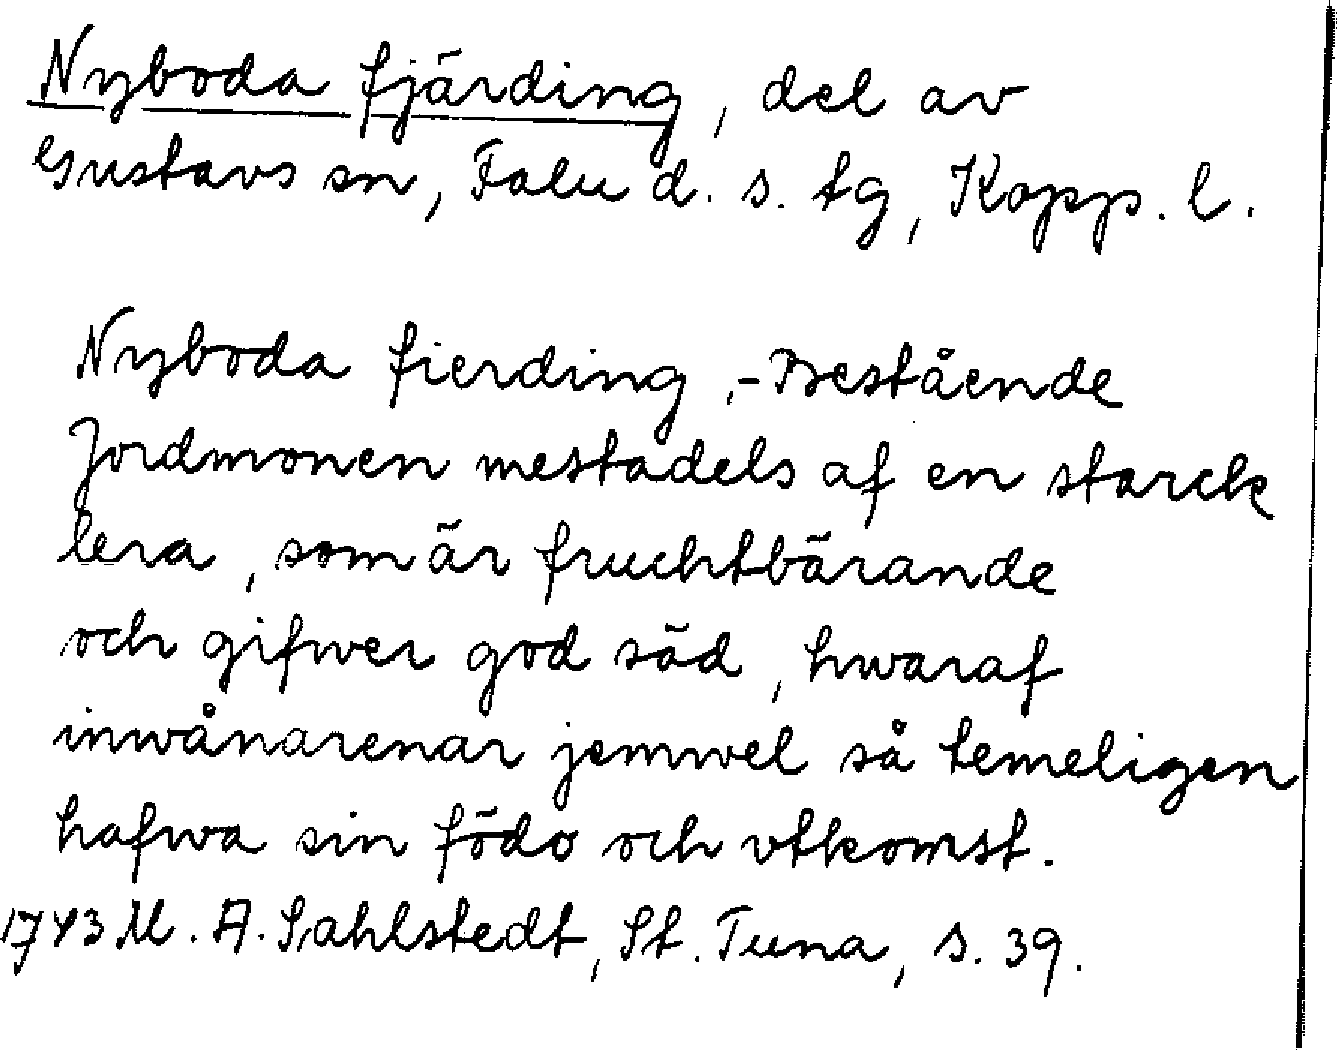 Nyboda fjärding, del av
Gustavs sn, Falu d. s. tg, Kopp. l.
Nyboda fierding,- Bestående
Jordmonen mestadels af en starck
lera, som är fruchtbärande
och gifwer god säd, hwaraf
inwånarenar jemwel så temeligen
hafwa sin födo och vtkomst.
1743 M. A. Sahlstedt, St. Tuna, s. 39.